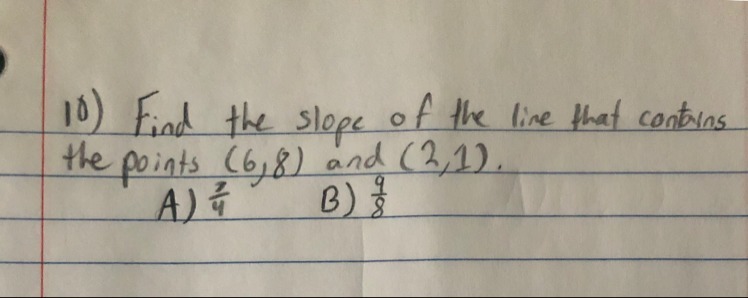 10) Find the slope of the line that contains
the points (6,8) and (2,1).
A) 7/4 B) 9/8